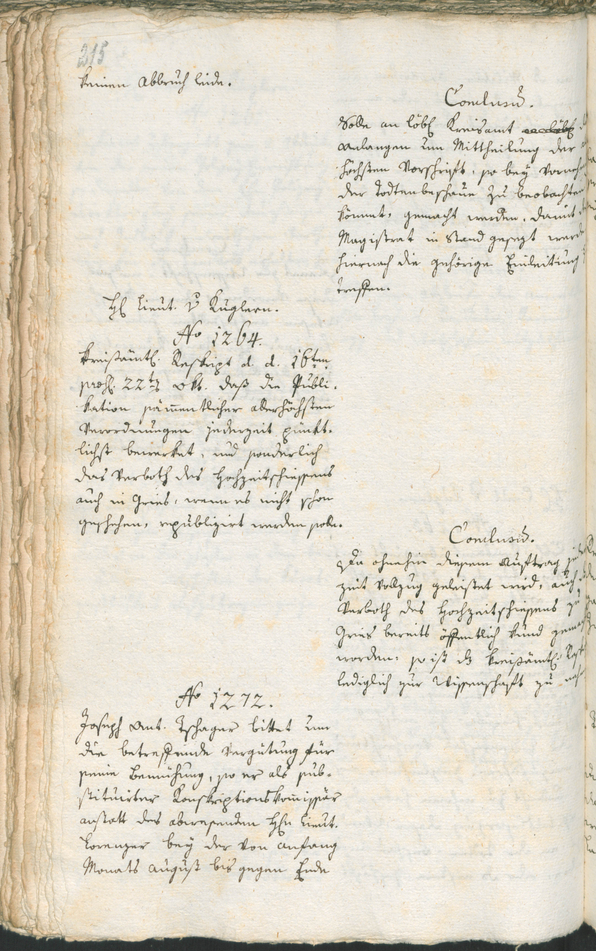 215
keinen Abbruch leide.
Conclusũ.
Solle an löbl. Kreisamt
anlangen um Mittheilung der
höchsten Vorschrift, so bey
der Todtenbeschaue zu beobachten
kommt, gemacht werden, damit
Magistrat in Stand gesezt werde
hiernach die gehörige Einleitung
treffen.
H. Lieut. v Kuglern.
No 1264.
Kreisämtl. Reskript d. d. 16ten
präs. 22ten Okt. daß die Publi-
kation sämmentlicher aberhöchsten
Verordnungen jederzeit pünkt-
lichst bewerket, und sonderlich
das Verboth des Hochzeitschiessens
auch in Gries, wenn es nicht schon
geschehen, republizirt werden solle.
Conclusũ.
Da ohnehin diesem Auftrag
zeit Vollzug geleistet wird, auch
Verboth des Hochzeitschiessens zu
Gries bereits öffentlich kund gemacht
worden: so ist das kreisämtl.
lediglich zur Wissenschaft zu
No 1272.
Joseph Ant. Tschager bittet um
die betreffende Vergütung für
seine Bemühung, so er als sub-
stituirter Konskriptionskomissär
anstatt des abwesenden Hrn Lieut.
Lorenger bey der von Anfang
Monats August bis gegen Ende